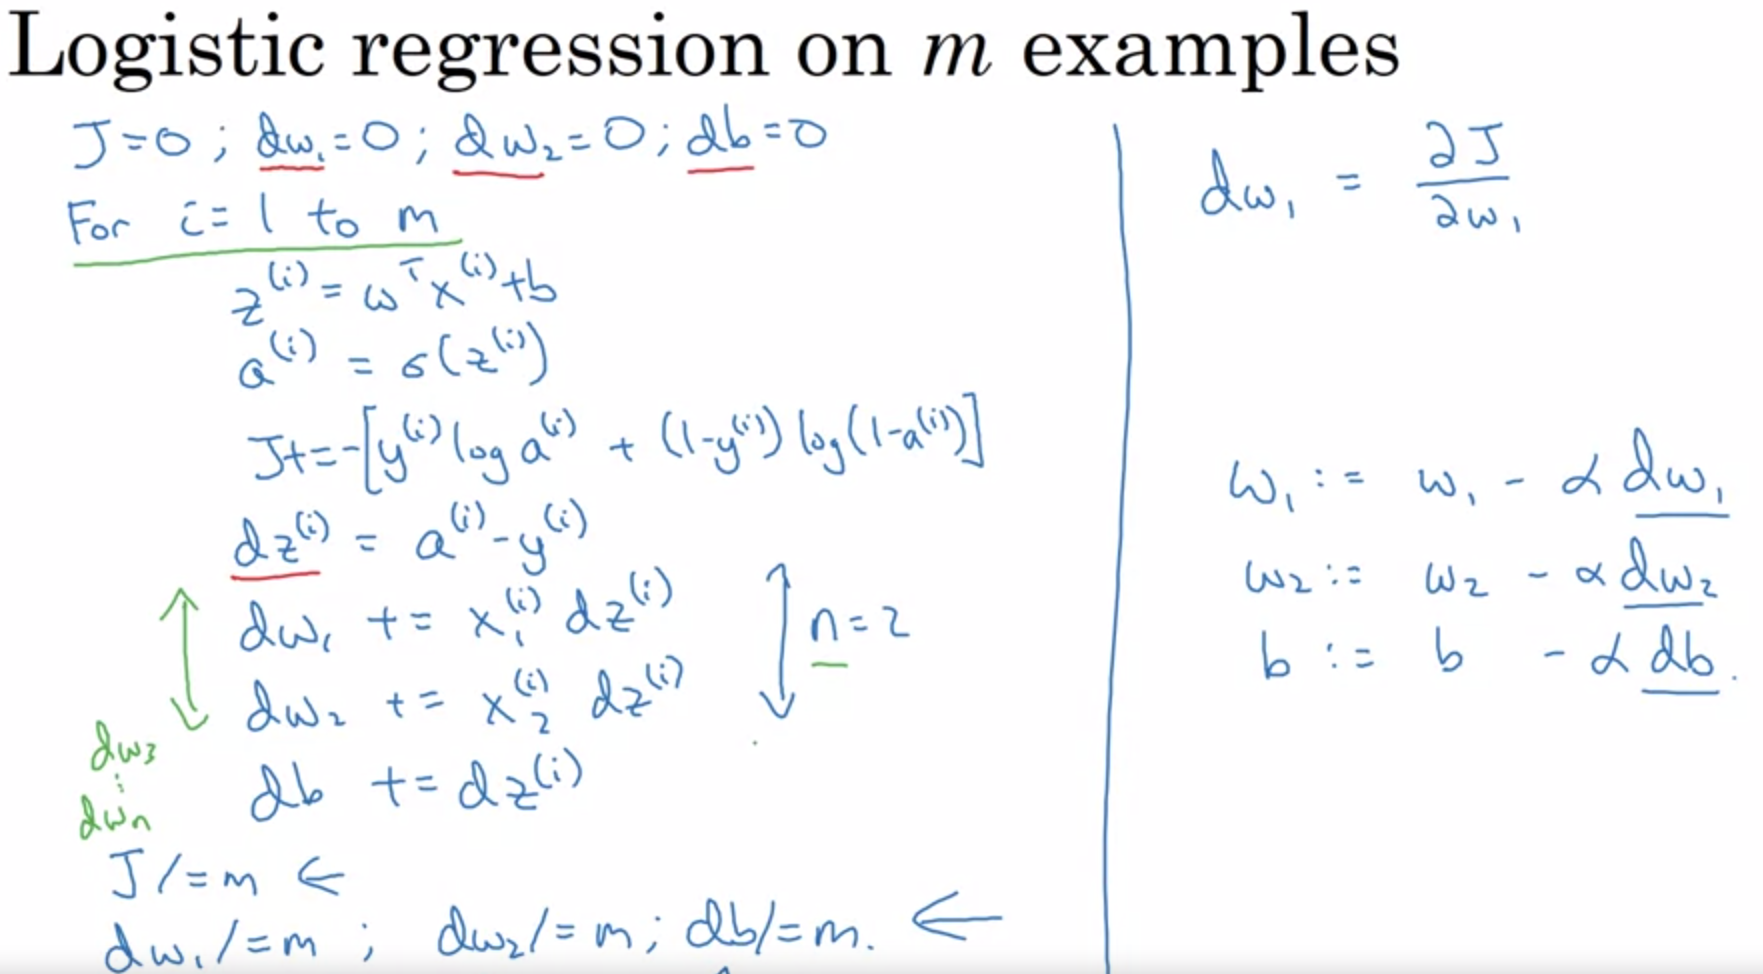 Logistic regression on m examples
J=0 ; dw₁=0 ; dw₂=0 ; db=0
For i=1 to m
z⁽ⁱ⁾ = ωᵀx⁽ⁱ⁾+b
a⁽ⁱ⁾ = σ(z⁽ⁱ⁾)
J+=-[y⁽ⁱ⁾ log a⁽ⁱ⁾ + (1-y⁽ⁱ⁾) log(1-a⁽ⁱ⁾)]
dz⁽ⁱ⁾ = a⁽ⁱ⁾-y⁽ⁱ⁾
dw₁ += x₁⁽ⁱ⁾ dz⁽ⁱ⁾
dw₂ += x₂⁽ⁱ⁾ dz⁽ⁱ⁾
n=2
db += dz⁽ⁱ⁾
dw₃
⋮
dwₙ
J/=m ←
dw₁/=m ; dw₂/=m ; db/=m. ←
dw₁ = ∂J/∂w₁
w₁ := w₁ - α dw₁
w₂ := w₂ - α dw₂
b := b - α db.